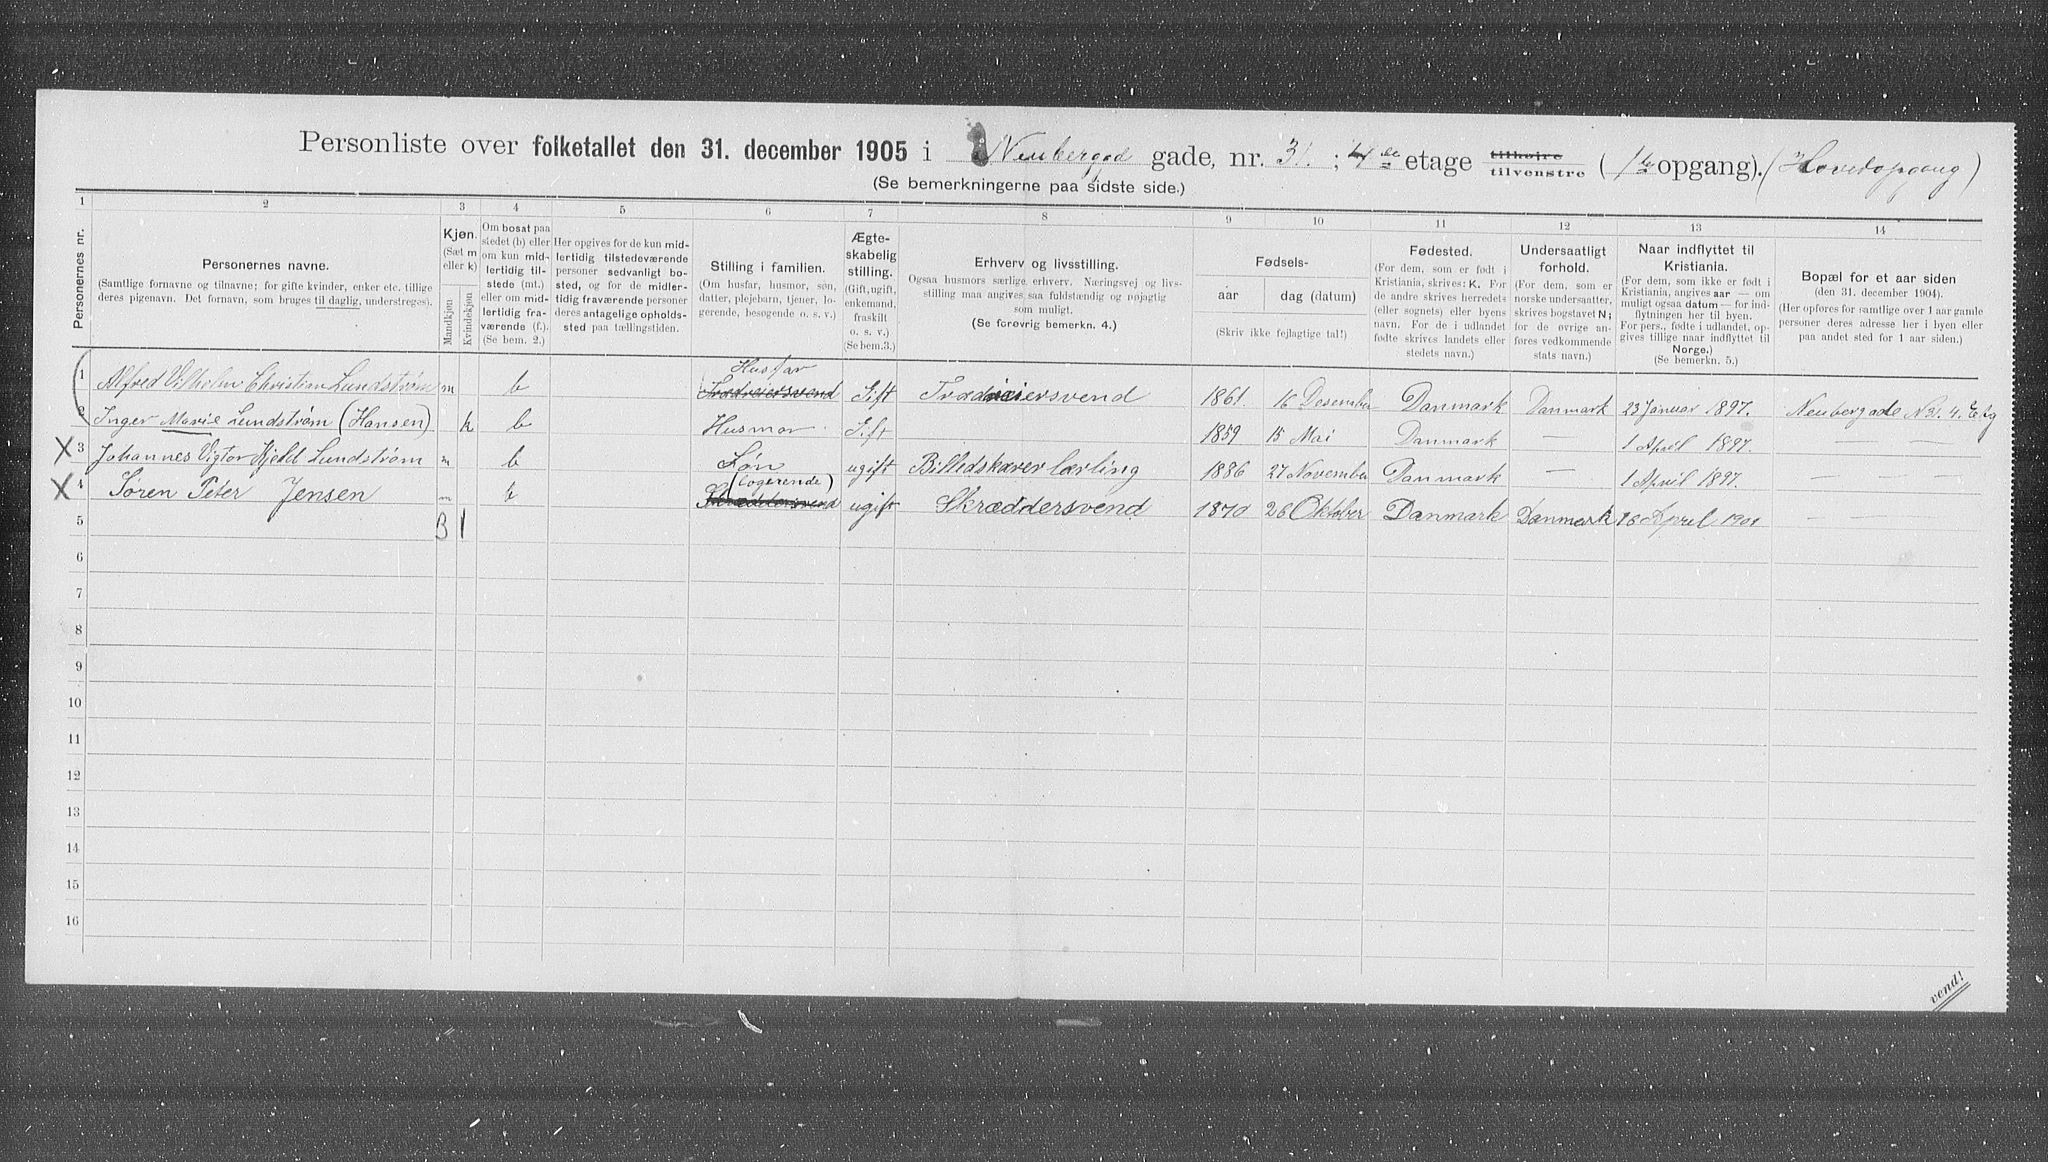 Personliste over folketallet den 31. december 1905 i Neubergad gade, nr. 31. ; 4 de etage tilhøire tilvenstre ( 1ste opgang). (Hovedopgang)
(Se bemerkningerne paa sidste side.)
1 2 3 4 5 6 7 8 9 10 11 12 13 14
Personernes nr.
Personernes navne.
(Samtlige fornavne og tilnavne; for gifte kvinder, enker etc. tillige
deres pigenavn. Det fornavn, som bruges til daglig, understreges).
Kjøn.
(Sæt m
eller k)
Mandkjøn
Kvindekjøn
Om bosat paa
stedet (b) eller
om kun mid-
lertidig til-
stede (mt.)
eller om mid-
lertidig fra-
værende (f.).
(Se bem. 2.)
Her opgives for de kun mid-
lertidig tilstedeværende
personer sedvanligt bo-
sted, og for de midler-
tidig fraværende personer
deres antagelige opholds-
sted paa tællingstiden.
Stilling i familien.
(Om husfar, husmor, søn,
datter, plejebarn, tjener, lo-
gerende, besøgende o. s. v.)
Ægte-
skabelig
stilling.
(Gift, ugift,
enkemand,
fraskilt
o. s. v.)
(Se bem.3.)
Erhverv og livsstilling.
Ogsaa husmors særlige erhverv. Næringsvej og livs-
stilling maa angives saa fuldstændig og nøjagtig
som muligt.
(Se forøvrig bemerkn. 4.)
Fødsels-
aar
dag (datum)
(Skriv ikke fejlagtige tal!)
Fødested.
(For dem, som er født i
Kristiania, skrives: K. For
de andre skrives herredets
(eller sognets) eller byens
navn. For de i udlandet
fødte skrives landets eller
stedets navn.)
Undersaatligt
forhold.
(For dem, som er
norske undersaatter,
skrives bogstavet N;
for de øvrige an-
føres vedkommende
stats navn.)
Naar indflyttet til
Kristiania.
(For dem, som ikke er født i
Kristiania, angives aar — om
muligt ogsaa datum — for ind-
flytningen her til byen.
For pers., fødte i udlandet, op-
gives tillige naar indflyttet til
Norge.)
(Se bemerkn. 5.)
Bopæl for et aar siden
(den 31. december 1904).
(Her opføres for samtlige over 1 aar gamle
personer deres adresse her i byen eller
paa andet sted for 1 aar siden.)
1 Alfred Vilhelm Christian Lundstrøm m b Husfar Gift 1861 16 Desember Danmark Danmark 23 Januar 1897.
2 Inger Marie Lundstrøm (Hansen) k b Husmor Gift 1859 15 Mai Danmark — 1 April 1897. — —
X 3 Johannes Vigtor Kjeld Lundstrøm m b Søn ugift Billedskærer lærling 1886 27 November Danmark — 1 April 1897. — — —
X 4 Søren Peter Jensen m b (Logerende) ugift Skræddersvend 1870 26 Oktober Danmark Danmark 16 April 1901 — —
5 3 1
6
7
8
9
10
11
12
13
14
15
16
vend!